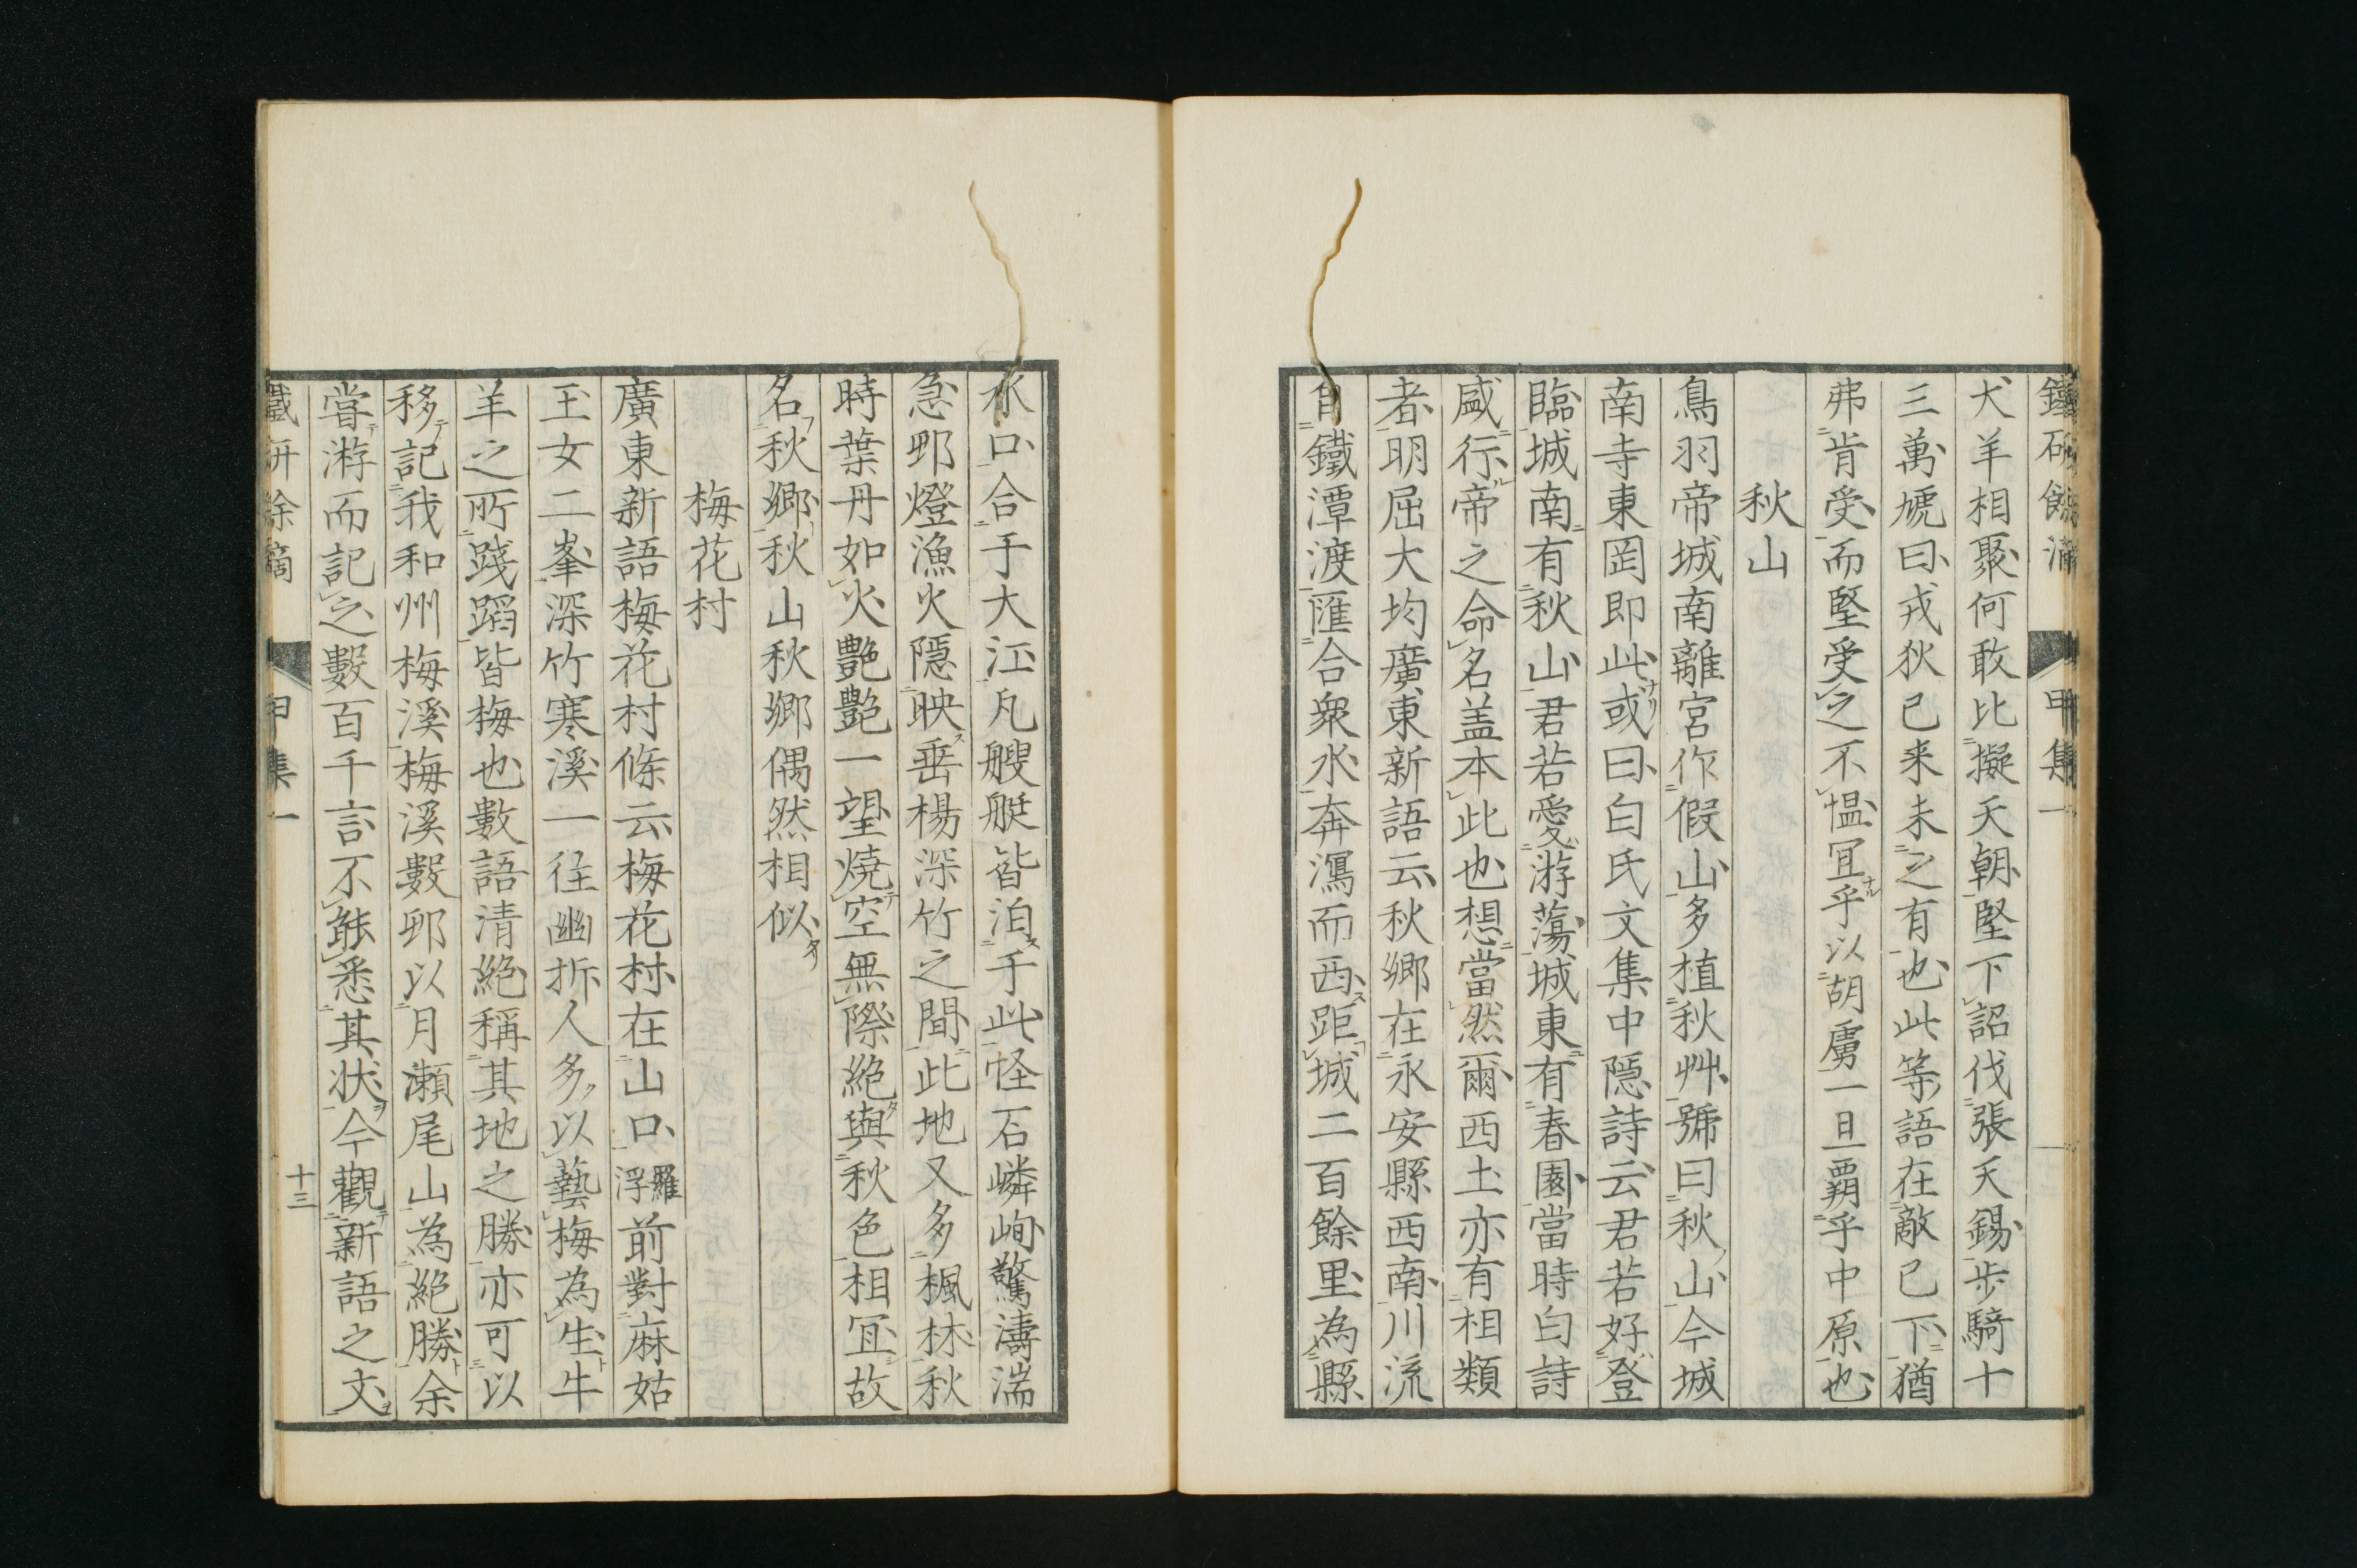 鐵研餘滴　甲集一
犬羊相聚何敢比擬天朝堅下詔伐張天錫步騎十
三萬虓曰戎狄已来未之有也此等語在敵已下猶
弗肯受而堅受之不愠冝乎以胡虜一旦覇乎中原也
秋山
鳥羽帝城南離宮作假山多植秋艸號曰秋山今城
南寺東岡即此或曰白氏文集中隠詩云君若好登
臨城南有秋山君若愛游蕩城東有春園當時白詩
盛行帝之命名盖本此也想當然爾西土亦有相類
者明屈大均廣東新語云秋鄉在永安縣西南川流
自鐵潭渡匯合衆水奔瀉而西距城二百餘里為縣
水口合于大江凡艘艇皆泊于此怪石嶙峋驚濤湍
急邨燈漁火隠映垂楊深竹之間此地又多楓林秋
時葉丹如火艷艷一望燒空無際絕與秋色相冝故
名秋鄉秋山秋鄉偶然相似
梅花村
廣東新語梅花村條云梅花村在山口羅浮前對麻姑
玉女二峯深竹寒溪一往幽折人多以藝梅為生牛
羊之所踐蹈皆梅也數語清絕稱其地之勝亦可以
移記我和州梅溪梅溪數邨以月瀬尾山為絕勝余
嘗游而記之數百千言不能悉其状今觀新語之文
鐵研餘滴　甲集一　十三